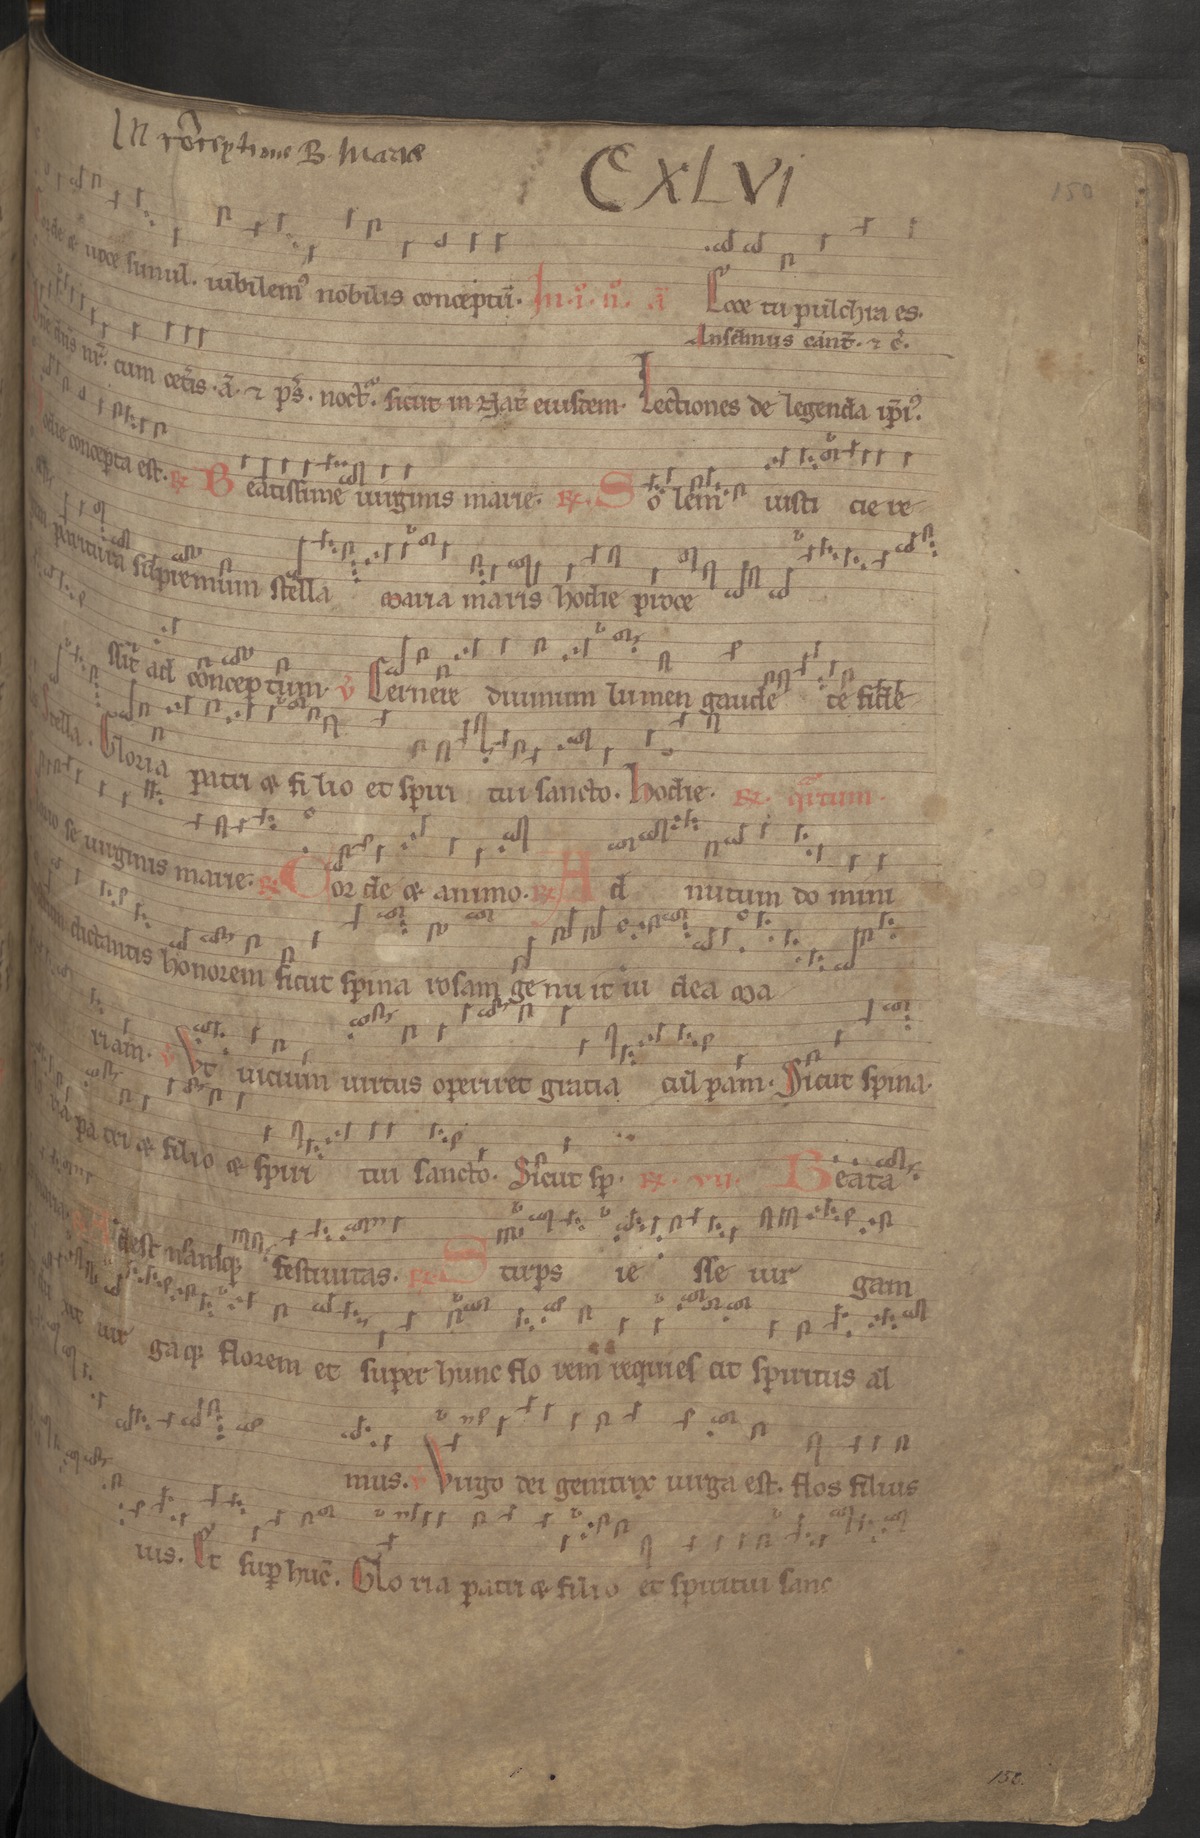 In cōceptione B. Mariæ
CXLVI
150
corde & uoce simul. iubilem⁹ nobilis conceptū. In .i. n̄. ā Ecce tu pulchra es.
Anselmus cant̄. ⁊ c̄.
nr̄. cum cet̄is. ā. ⁊ ps̄. noct̄. sicut in Nat̄ eiusdem. Lectiones de legenda ip̄i⁹.
odie concepta est. ℟ Beatissime uirginis marie. ℟. Solem iusticie re
gem paritura supremum stella maria maris hodie proce
ssit ad conceptum. ℣ Cernere diuinum lumen gaudete fidele
stella. Gloria patri & filio et spiritui sancto. hodie. ℟. q̄rtum.
se uirginis marie. ℟ Corde & animo. ℟ Ad nutum domini
dictantis honorem sicut spina rosam genuit iudea ma
riam. ℣ Ut uicium uirtus operiret gratia culpam. Sicut spina.
ria patri & filio & spiritui sancto. Sicut sp̄. ℟. vii. Beata
maria. ℟ Adest namq; festiuitas. ℟. Stirps iesse uirgam
uirgaq; florem et super hunc florem requiescit spiritus al
mus. ℣ Uirgo dei genitrix uirga est. flos filius
ius. Et sup̄ hūc. Gloria patri & filio et spiritui sanc
150.